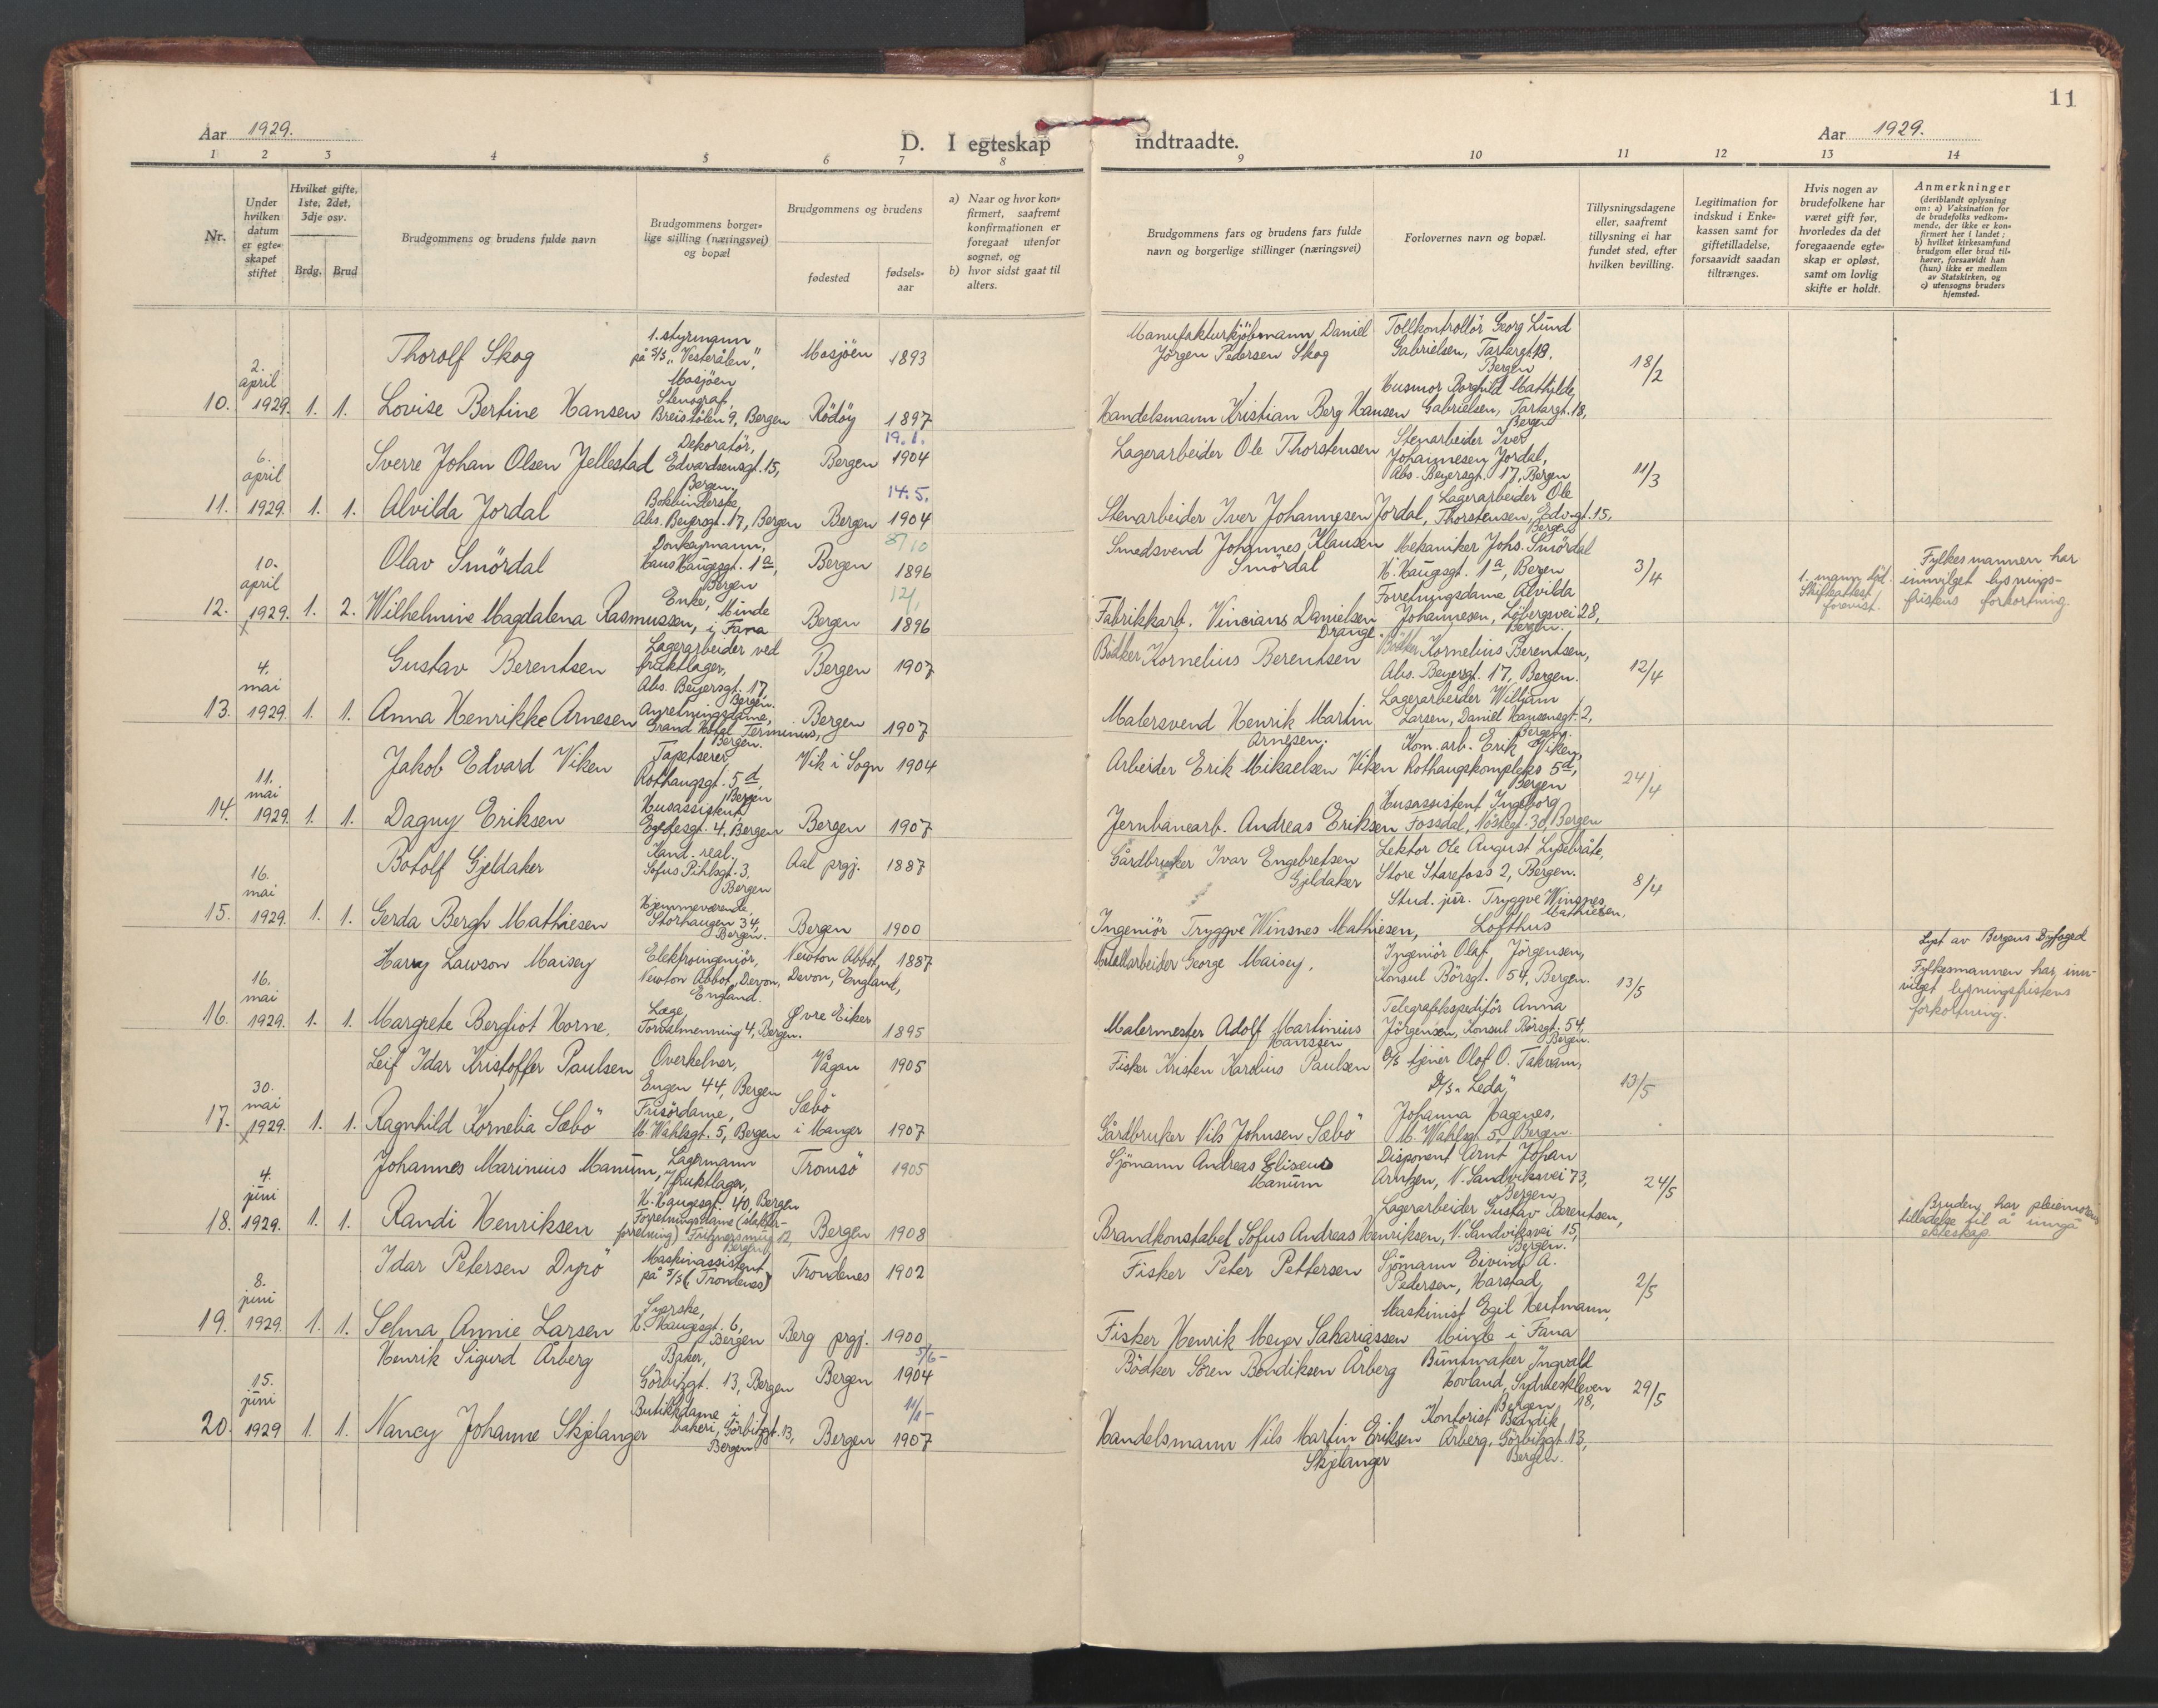 11
Aar 1929.
D. I egteskap indtraadte.
Aar 1929.
1 2 3 4 5 6 7 8 9 10 11 12 13 14
Nr.
Under
hvilken
datum
er egte-
skapet
stiftet
Hvilket gifte,
1ste, 2det,
3dje osv.
Brdg. Brud
Brudgommens og brudens fulde navn
Brudgommens borger-
lige stilling (næringsvei)
og bopæl
Brudgommens og brudens
fødested
fødsels-
aar
a) Naar og hvor kon-
firmert, saafremt
konfirmationen er
foregaat utenfor
sognet, og
b) hvor sidst gaat til
alters.
Brudgommens fars og brudens fars fulde
navn og borgerlige stillinger (næringsvei)
Forlovernes navn og bopæl.
Tillysningsdagene
eller, saafremt
tillysning ei har
fundet sted, efter
hvilken bevilling.
Legitimation for
indskud i Enke-
kassen samt for
giftetilladelse,
forsaavidt saadan
tiltrænges.
Hvis nogen av
brudefolkene har
været gift før,
hvorledes da det
foregaaende egte-
skap er opløst,
samt om lovlig
skifte er holdt.
Anmerkninger
(deriblandt oplysning
om: a) Vaksination for
de brudefolks vedkom-
mende, der ikke er kon-
firmert her i landet;
b) hvilket kirkesamfund
brudgom eller brud til-
hører, forsaavidt han
(hun) ikke er medlem
av Statskirken, og
c) utensogns bruders
hjemsted.
10.
2.
april
1929.
1. 1.
Thorolf Skog
1. styrmann
på S/S "Vesterålen",
Mosjöen
Mosjöen 1893
Manufakturkjöbmann Daniel
Jörgen Pedersen Skog
Tollkontrollör Georg Lund
Gabrielsen, Tartargt. 18,
Bergen
18/2
Lovise Bertine Hansen
Stenograf,
Breistölen 9, Bergen
Rödöy 1897
Handelsmann Kristian Berg Hansen
Husmor Borghild Mathilde
Gabrielsen, Tartargt. 18,
Bergen
11.
6.
april
1929.
1. 1.
Sverre Johan Olsen Jellestad
Dekoratör,
Edvardsensgt. 15,
Bergen.
Bergen
19.1.
1904
Lagerarbeider Ole Thorstensen
Stenarbeider Iver
Johannesen Jordal,
Abs. Beyersgt. 17, Bergen
11/3
Alvilda Jordal
Bokbinderske,
Abs. Beyersgt. 17, Bergen
Bergen
14.5.
1904
Stenarbeider Iver Johannesen Jordal,
Lagerarbeider Ole
Thorstensen, Edv.gt. 15,
Bergen
12.
10.
april
1929.
x
1. 2.
Olav Smördal
Donkeymann,
Hans Haugesgt. 1a,
Bergen
Bergen
8/10
1896
Smedsvend Johannes Klausen
Smördal
Mekaniker Johs. Smördal
H. Haugesgt. 1a, Bergen
3/4
1. mann död.
Skifteattest
forevist.
Fylkesmannen har
innvilget lysnings-
fristens forkortning.
Wilhelmine Magdalena Rasmussen,
Enke, Minde
i Fana
Bergen
1896
Fabrikkarb. Vincians Danielsen
Drange
Forretningsdame Alvilda
Johannesen, Löbergsvei 28,
Bergen.
13.
4.
mai
1929.
1. 1.
Gustav Berentsen
Lagerarbeider ved
fruktlager,
Abs. Beyersgt. 17,
Bergen.
Bergen 1907
Bödker Kornelius Berentsen
Bödker Kornelius Berentsen,
Abs. Beyersgt. 17, Bergen.
12/4
Anna Henrikke Arnesen
Anretningsdame,
Grand Hotel Terminus,
Bergen.
Bergen 1907
Malersvend Henrik Martin
Arnesen.
Lagerarbeider William
Larsen, Daniel Hansensgt. 2,
Bergen.
14.
11.
mai
1929.
1. 1.
Jakob Edvard Viken
Tapetserer
Rothaugsgt. 5d,
Bergen
Vik i Sogn 1904
Arbeider Erik Mikaelsen Viken
Kom. arb. Erik Viken,
Rothaugskompleks 5d,
Bergen
24/4
Dagny Eriksen
Husassistent
Egedesgt. 4, Bergen
Bergen 1907
Jernbanearb. Andreas Eriksen
Husassistent Ingeborg
Fossdal, Nöstegt. 30, Bergen
15.
16.
mai
1929.
1. 1.
Botolf Gjeldaker
Kand. real.
Sofus Pihlsgt. 3,
Bergen
Aal prgj. 1887
Gårdbruker Ivar Engebretsen
Gjeldaker
Lektor Ole August Lysebråte,
Store Starefoss 2, Bergen.
8/4
Gerda Bergh Mathiesen
Hjemmeværende,
Storhaugen 34,
Bergen.
Bergen 1900
Ingeniör Tryggve Winsnes Mathiesen,
Stud. jur. Tryggve Winsnes
Mathiesen,
Lofthus
16.
16.
mai
1929.
1. 1.
Harry Lawson Maisey
Elektroingeniör,
Newton Abbot, Devon,
England.
Newton Abbot,
Devon, England, 1887
Metallarbeider George Maisey.
Ingeniör Olaf Jörgensen,
Konsul Börsgt. 54, Bergen.
13/5
Lyst av Bergens Byfoged
Fylkesmannen har inn-
vilget lysningsfristens
forkortning.
Margrete Bergliot Horne.
Læge,
Torvalmenning 4, Bergen.
Øvre Eiker
1895
Malermester Adolf Martinius
Hanssen
Telegrafekspeditör Anna
Jörgensen, Konsul Börsgt. 54,
Bergen.
17.
30.
mai
1929.
x
1. 1.
Leif Idar Kristoffer Paulsen
Overkelner,
Engen 44, Bergen
Vågan 1905
Fisker Kristen Karolius Paulsen
D/S tjener Olof O. Takvam,
D/S "Leda"
13/5
Ragnhild Kornelia Sæbö
Frisördame,
M. Wahlsgt. 5, Bergen
Sæbö
i Manger 1907
Gårdbruker Nils Johnsen Sæbö
Johanna Hagenes,
M. Wahlsgt. 5, Bergen.
18.
4.
juni
1929.
1. 1.
Johannes Marinius Manum,
Lagermann
v/ fruktlager,
H. Haugesgt. 40, Bergen
Tromsö 1905
Sjömann Andreas Eliseus
Manum
Disponent Arnt Johan
Arntzen, N. Sandviksvei 73,
Bergen
24/5
Randi Henriksen
Forretningsdame (slakter-
forretning) Fritznersmug 12,
Bergen
Bergen 1908
Brandkonstabel Sofus Andreas Henriksen,
Lagerarbeider Gustav Berentsen,
N. Sandviksvei 15,
Bergen.
Bruden har pleiemorens
tilladelse til å inngå
ekteskap.
19.
8.
juni
1929.
1. 1.
Idar Petersen Dyrö
Maskinassistent
på S/S (Trondenes)
Trondenes 1902
Fisker Peter Pettersen
Sjömann Eivind A.
Pedersen, Harstad,
2/5
Selma Annie Larsen
H. Haugesgt. 6,
Bergen
Berg prgj. 1900
Fisker Henrik Meyer Sakariassen
Maskinist Egil Hertmann,
Minde i Fana
20.
15.
juni
1929
1. 1.
Henrik Sigurd Årberg
Baker,
Görbitzgt. 13, Bergen
Bergen
5/6-
1904
Bödker Sören Bendiksen Årberg
Buntmaker Ingvald
Hovland, Sydneskleven
18, Bergen
29/5
Nancy Johanne Skjelanger
Butikkdame i
bakeri, Görbitzgt. 13,
Bergen
Bergen
1907
Handelsmann Nils Martin Eriksen
Skjelanger
Kontorist Bendik
Årberg, Görbitzgt. 13,
Bergen.